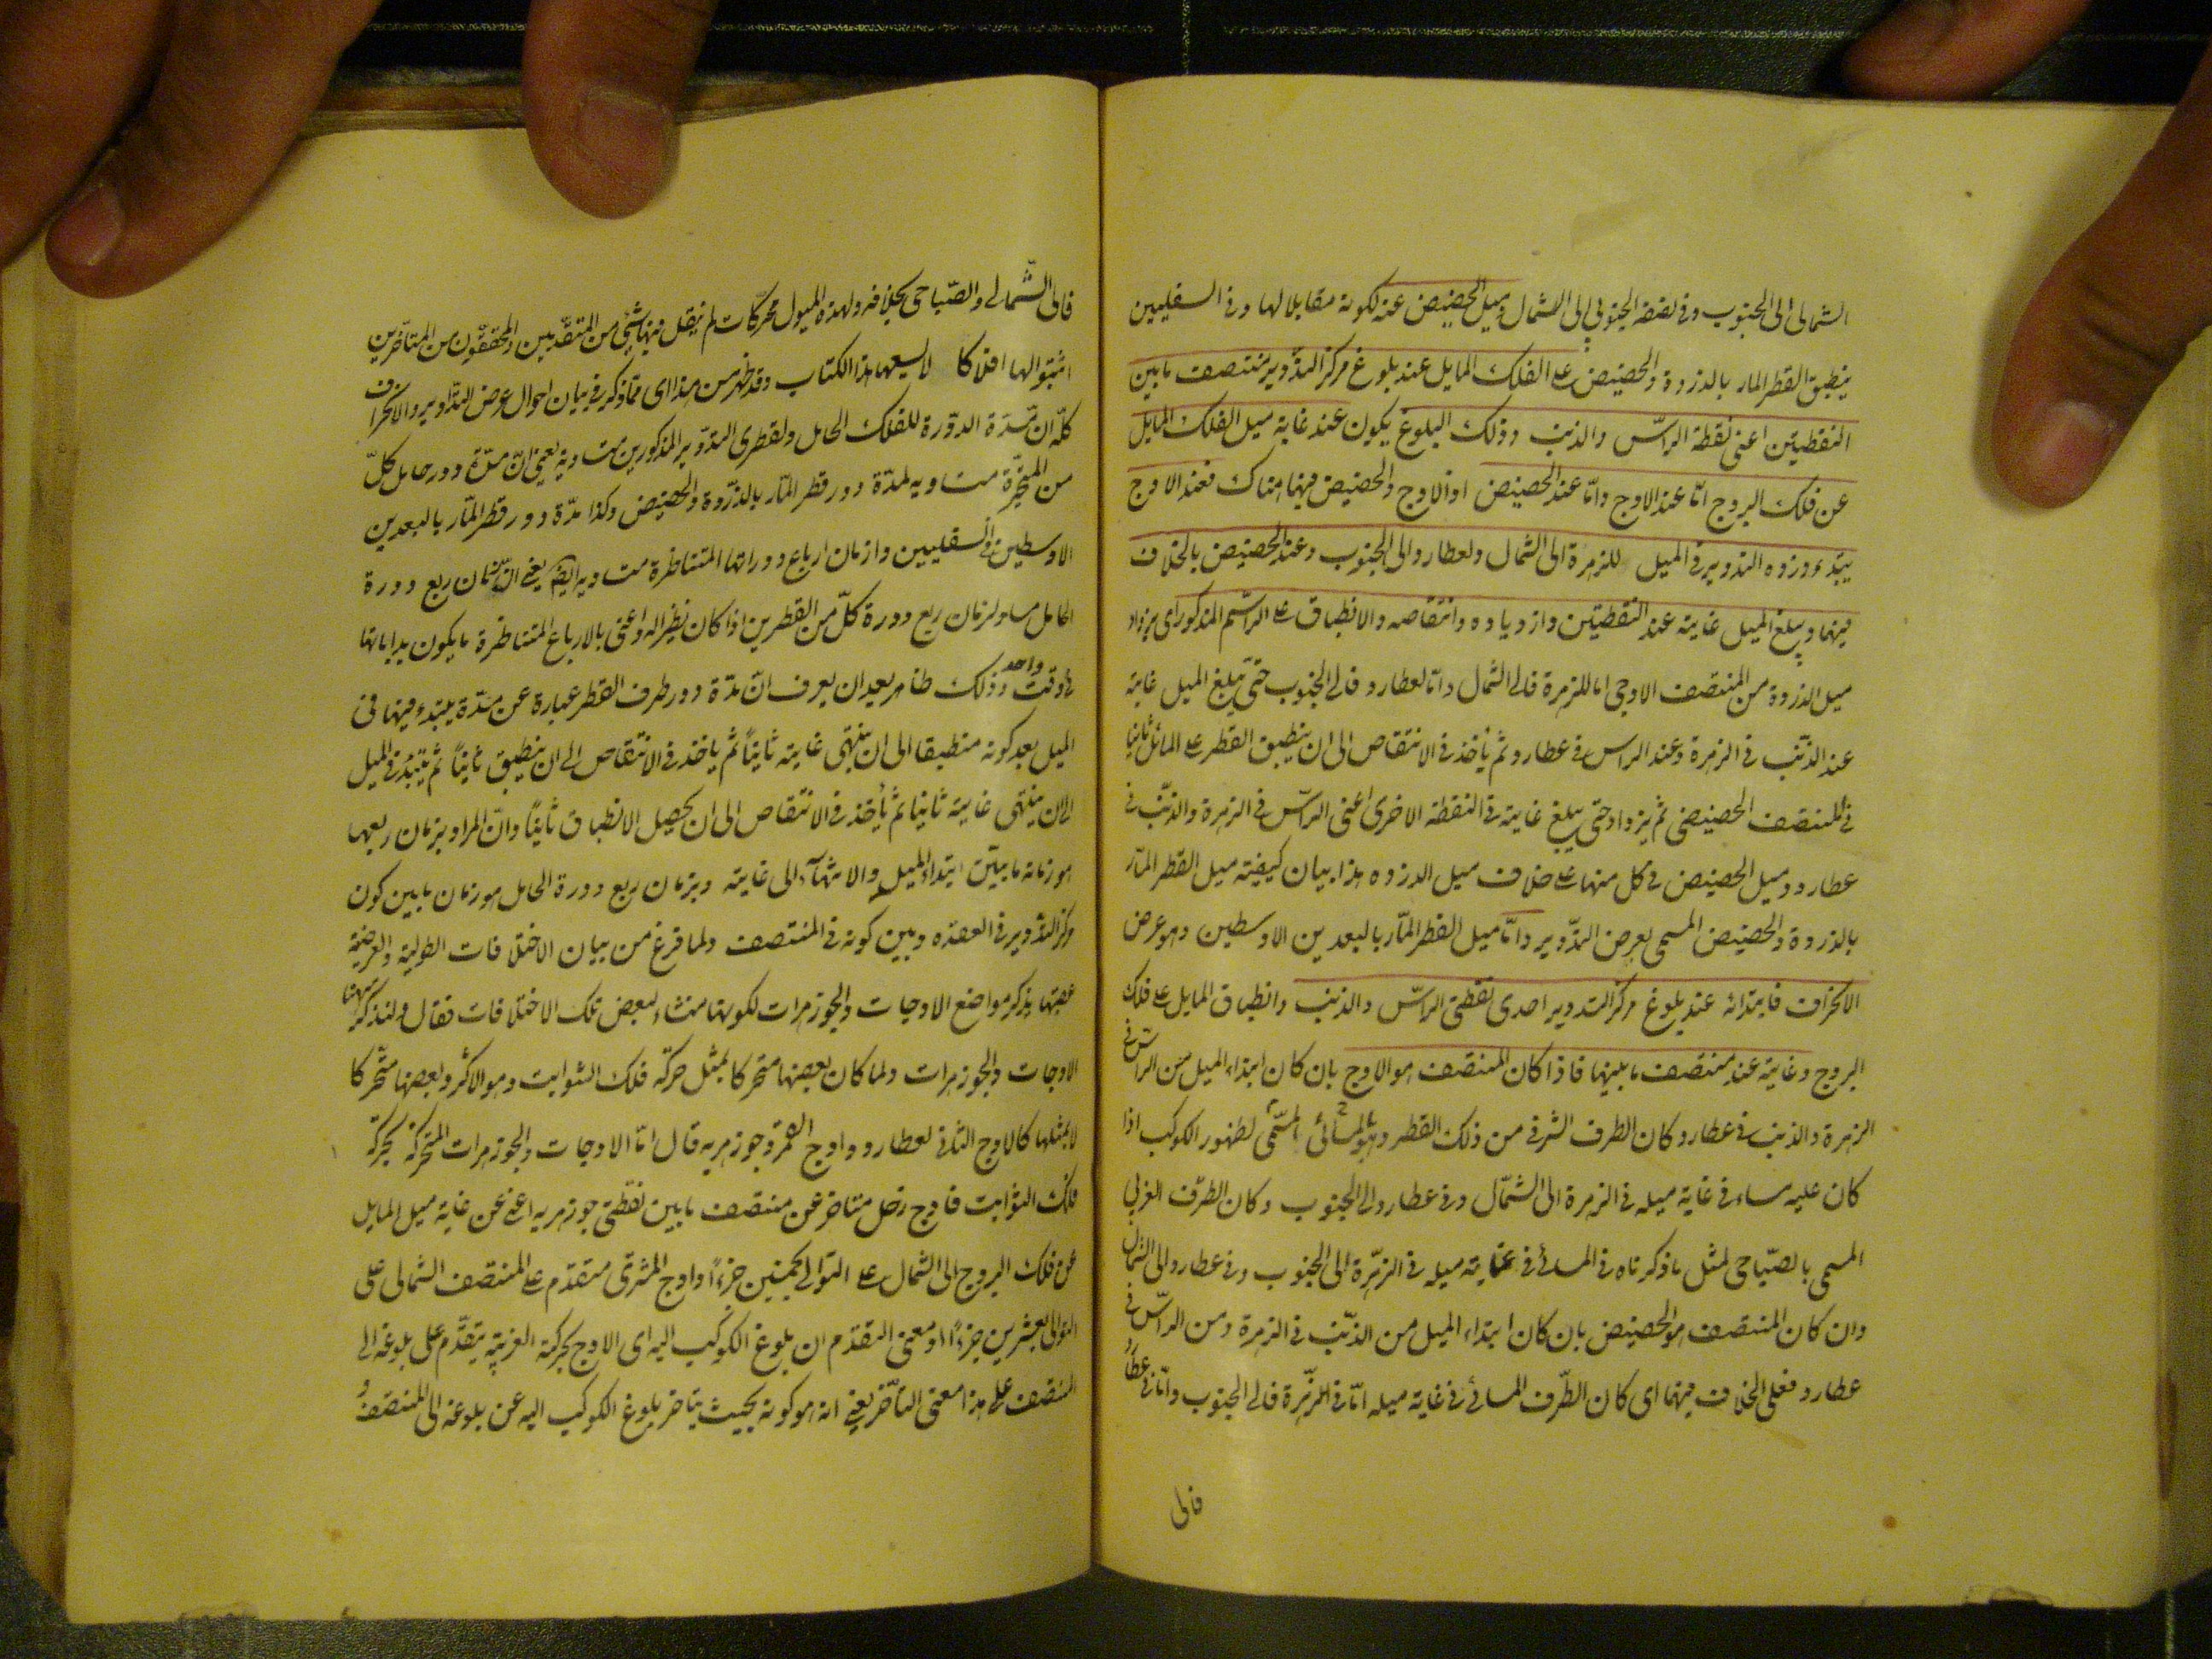 الشمالى الى الجنوب وفى نصفه الجنوبى الى الشمال وميل الحضيض عنه لكونه مقابلا لها وفى السفليين
ينطبق القطر المار بالذروة والحضيض على الفلك المايل عند بلوغ مركز التدوير منتصف ما بين
النقطتين اعنى نقطة الراس والذنب وذلك البلوغ يكون عند غاية ميل الفلك المايل
عن فلك البروج امّا عند الاوج وامّا عند الحضيض اذ الاوج والحضيض فيهما هناك فعند الاوج
يبتدء ذروه التدوير فى الميل للزهرة الى الشمال ولعطارد الى الجنوب وعند الحضيض بالخلاف
فيهما ويبلغ الميل غايته عند النقطتين وازدياده وانتقاصه والانطباق على الرسم المذكور اى يزداد
ميل الذروة من المنتصف الاوجى اما للزهرة فالى الشمال وامّا لعطارد فالى الجنوب حتى يبلغ الميل غايته
عند الذنب فى الزهرة وعند الراس فى عطارد ثم يأخذ فى الانتقاص الى ان ينطبق القطر على المائل ثانيا
فى المنتصف الحضيضى ثم يزداد حتى يبلغ غايته فى النقطة الاخرى اعنى الراس فى الزهرة والذنب فى
عطارد وميل الحضيض فى كل منهما على خلاف ميل الذروه هذا بيان كيفيته ميل القطر المار
بالذروة والحضيض المسمى بعرض التدوير وامّا ميل القطر المارّ بالبعدين الاوسطين وهو عرض
الانحراف فابتدائه عند بلوغ مركز التدوير احدى نقطتى الراس والذنب وانطباق المايل على فلك
البروج وغايته عند منتصف ما بينهما فاذا كان المنتصف هو الاوج بان كان ابتداء الميل من الراس فى
الزهرة والذنب فى عطارد كان الطرف الشرقى من ذلك القطر وهو المسائى المسمّى لظهور الكوكب اذا
كان عليه مساء فى غاية ميله فى الزهرة الى الشمال وفى عطارد الى الجنوب وكان الطرف الغربى
المسمى بالصباحى لمثل ما ذكرناه فى المسائى فى غاية ميله فى الزهرة الى الجنوب وفى عطارد الى الشمال
وان كان المنتصف هو الحضيض بان كان ابتداء الميل من الذنب فى الزهرة ومن الراس فى
عطارد فعلى الخلاف فيهما اى كان الطرف المسائى فى غاية ميله امّا فى الزهرة فالى الجنوب وامّا فى عطارد
فالى
فالى الشمالى والصباحى بخلافه ولهذه الميول محركات لم ينقل فيها شىء من المتقدمين والمحققون من المتأخرين
اثبتوا لها افلاكا لا يسعها هذا الكتاب وقد ظهر من هذا اى ممّا ذكر فى بيان احوال عرض التداوير والانحراف
كلّه ان مدّة الدورة للفلك الحامل ولقطرى التدوير المذكورين متساوية يعنى انّ مدّة دور حامل كلّ
من المتحيّرة متساويه لمدّة دور قطر المارّ بالذروة والحضيض وكذا مدّة دور قطر المارّ بالبعدين
الاوسطين فى السفليين وازمان ارباع دوراتها المتناظرة متساويه ايضا يعنى ان زمان ربع دورة
الحامل مساو لزمان ربع دورة كلّ من القطرين اذا كان نظيرا له واعنى بالارباع المتناظرة ما يكون بداياتها
فى وقت واحد وذلك ظاهر بعد ان يعرف انّ مدّة دور طرف القطر عبارة عن مدّة يبتدء فيها فى
الميل بعد كونه منطبقا الى ان ينتهى غايته ثانياً ثم ياخذ فى الانتقاص الى ان ينطبق ثانياً ثم يبتدء فى الميل
الى ان ينتهى غايته ثانيا ثم يأخذ فى الانتقاص الى ان يحصل الانطباق ثانياً وانّ المراد بزمان ربعها
هو زمانه ما بين ابتداء الميل والانتهاء الى غايته وبزمان ربع دورة الحامل هو زمان ما بين كون
مركز التدوير فى العقده وبين كونه فى المنتصف ولما فرغ من بيان الاختلافات الطولية والعرضية
عقبها بذكر مواضع الاوجات والجوزهرات لكونها منشاء لبعض تلك الاختلافات فقال ولنذكر ههنا
الاوجات والجوزهرات ولما كان بعضها متحركا بمثل حركة فلك الثوابت وهو الاكثر وبعضها متحركا
لا بمثلها كالاوج الثانى لعطارد واوج القمر وجوزهريه قال امّا الاوجات والجوزهرات المتحركة بحركة
فلك الثوابت فاوج زحل متاخر عن منتصف ما بين نقطتى جوزهريه اعنى عن غاية ميل المايل
عن فلك البروج الى الشمال على التوالى بخمسين جزءاً واوج المشترى متقدّم على المنتصف الشمالى على
التوالى بعشرين جزءاً ومعنى التقدّم ان بلوغ الكوكب اليه اى الاوج بحركة الغربية يتقدّم على بلوغه الى
المنتصف على هذا معنى التأخّر يعنى انه هو كونه بحيث يتاخر بلوغ الكوكب اليه عن بلوغه الى المنتصف